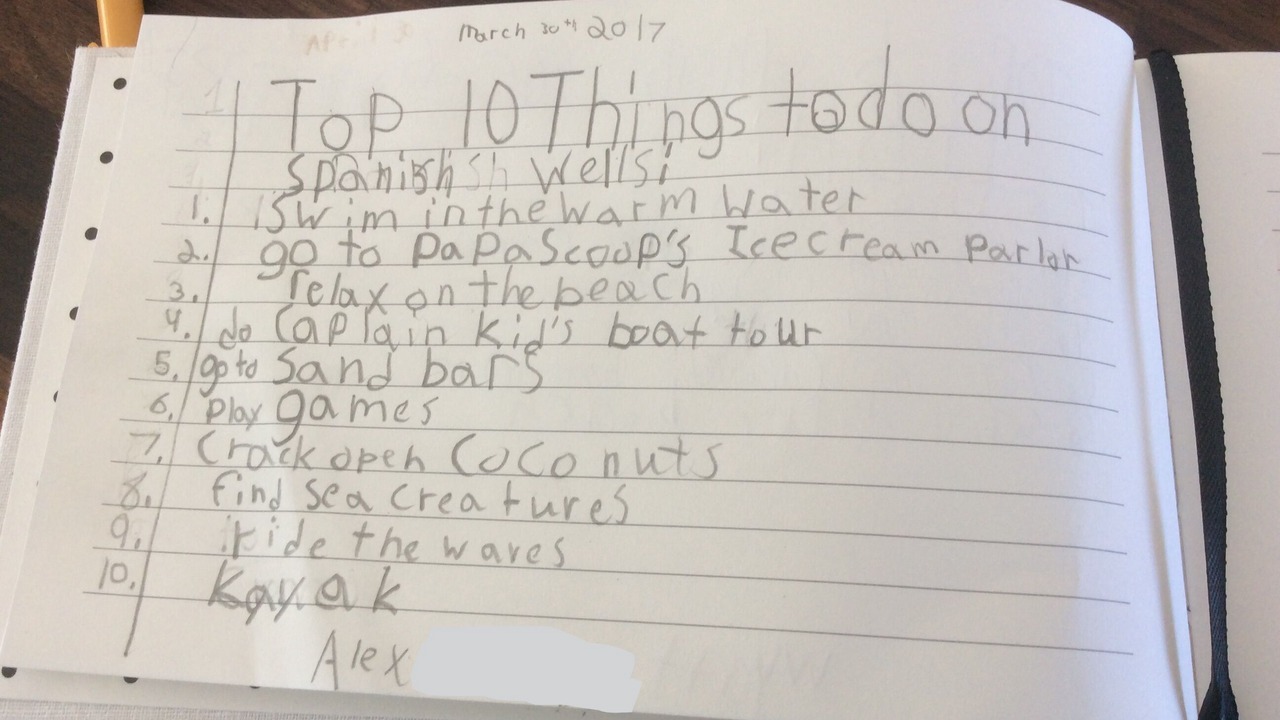 March 30th 2017
Top 10 Things to do on
Spanish Wells:
1. Swim in the warm water
2. go to PaPa Scoop's Ice cream Parlor
3. relax on the beach
4. do Captain Kid's boat tour
5. go to Sand bars
6. play games
7. Crack open Coconuts
8. find sea creatures
9. ride the waves
10. Kayak
Alex